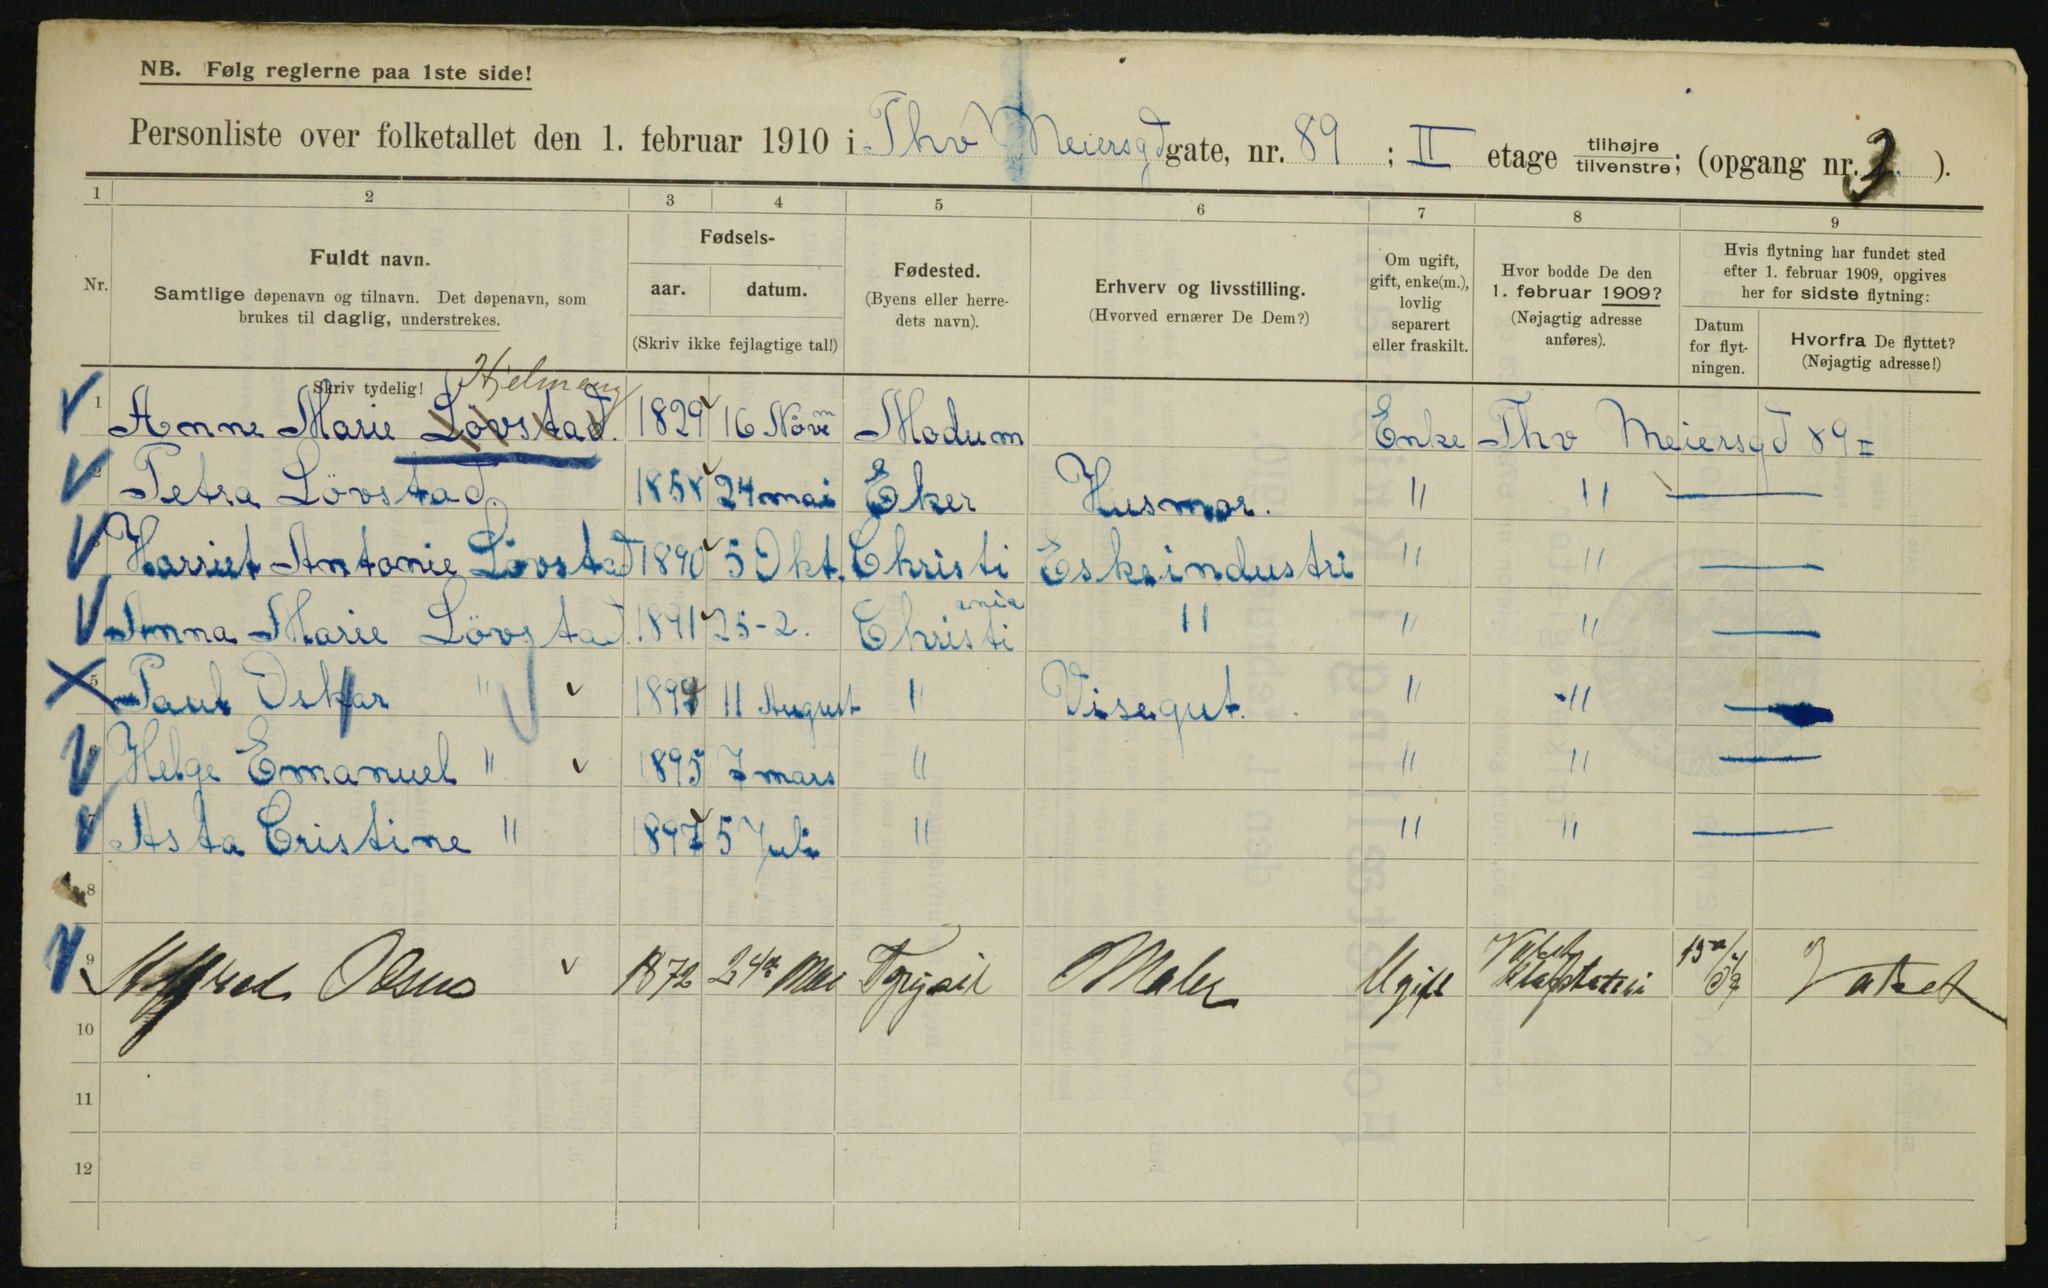 NB. Følg reglerne paa 1ste side!
Personliste over folketallet den 1. februar 1910 i Thv Meiersgd gate, nr. 89 ; II etage tilhøjre tilvenstre; (opgang nr. 2. ).
1 2 3 4 5 6 7 8 9
Nr.
Fuldt navn.
Samtlige døpenavn og tilnavn. Det døpenavn, som
brukes til daglig, understrekes.
Skriv tydelig!
Fødsels-
aar. datum.
(Skriv ikke fejlagtige tal!)
Fødested.
(Byens eller herre-
dets navn).
Erhverv og livsstilling.
(Hvorved ernærer De Dem?)
Om ugift,
gift, enke(m.),
lovlig
separert
eller fraskilt.
Hvor bodde De den
1. februar 1909?
(Nøjagtig adresse
anføres).
Hvis flytning har fundet sted
efter 1. februar 1909, opgives
her for sidste flytning:
Datum
for flyt-
ningen.
Hvorfra De flyttet?
(Nøjagtig adresse!)
1 Anne Marie Lövstad. 1829 16 Novm Modum Enke Thv Meiersgd 89 II
2 Petra Lövstad. 1858 24 mai Eker Husmor. " "
Harriet Antonie Lövstad 1890 5 Okt. Christi Eskeindustri " "
Anna Marie Lövstad. 1891 25-2. Christiania " " "
5 Paul Oskar " 11 August " Visegut. " "
Helge Emanuel " 1895 7 mars " " "
7 Asta Cristine " 1897 5 Juli " " "
8
9 1872 Maler Ugift
10
11
12